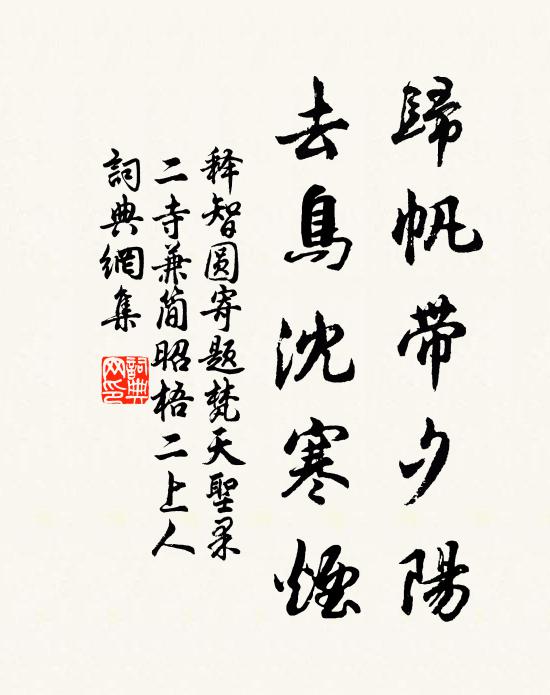 歸帆帶夕陽
去鳥沈寒煙
释智圆寄題梵天聖果
二寺兼简昭梧二上人
詞典網集
詞典
网印